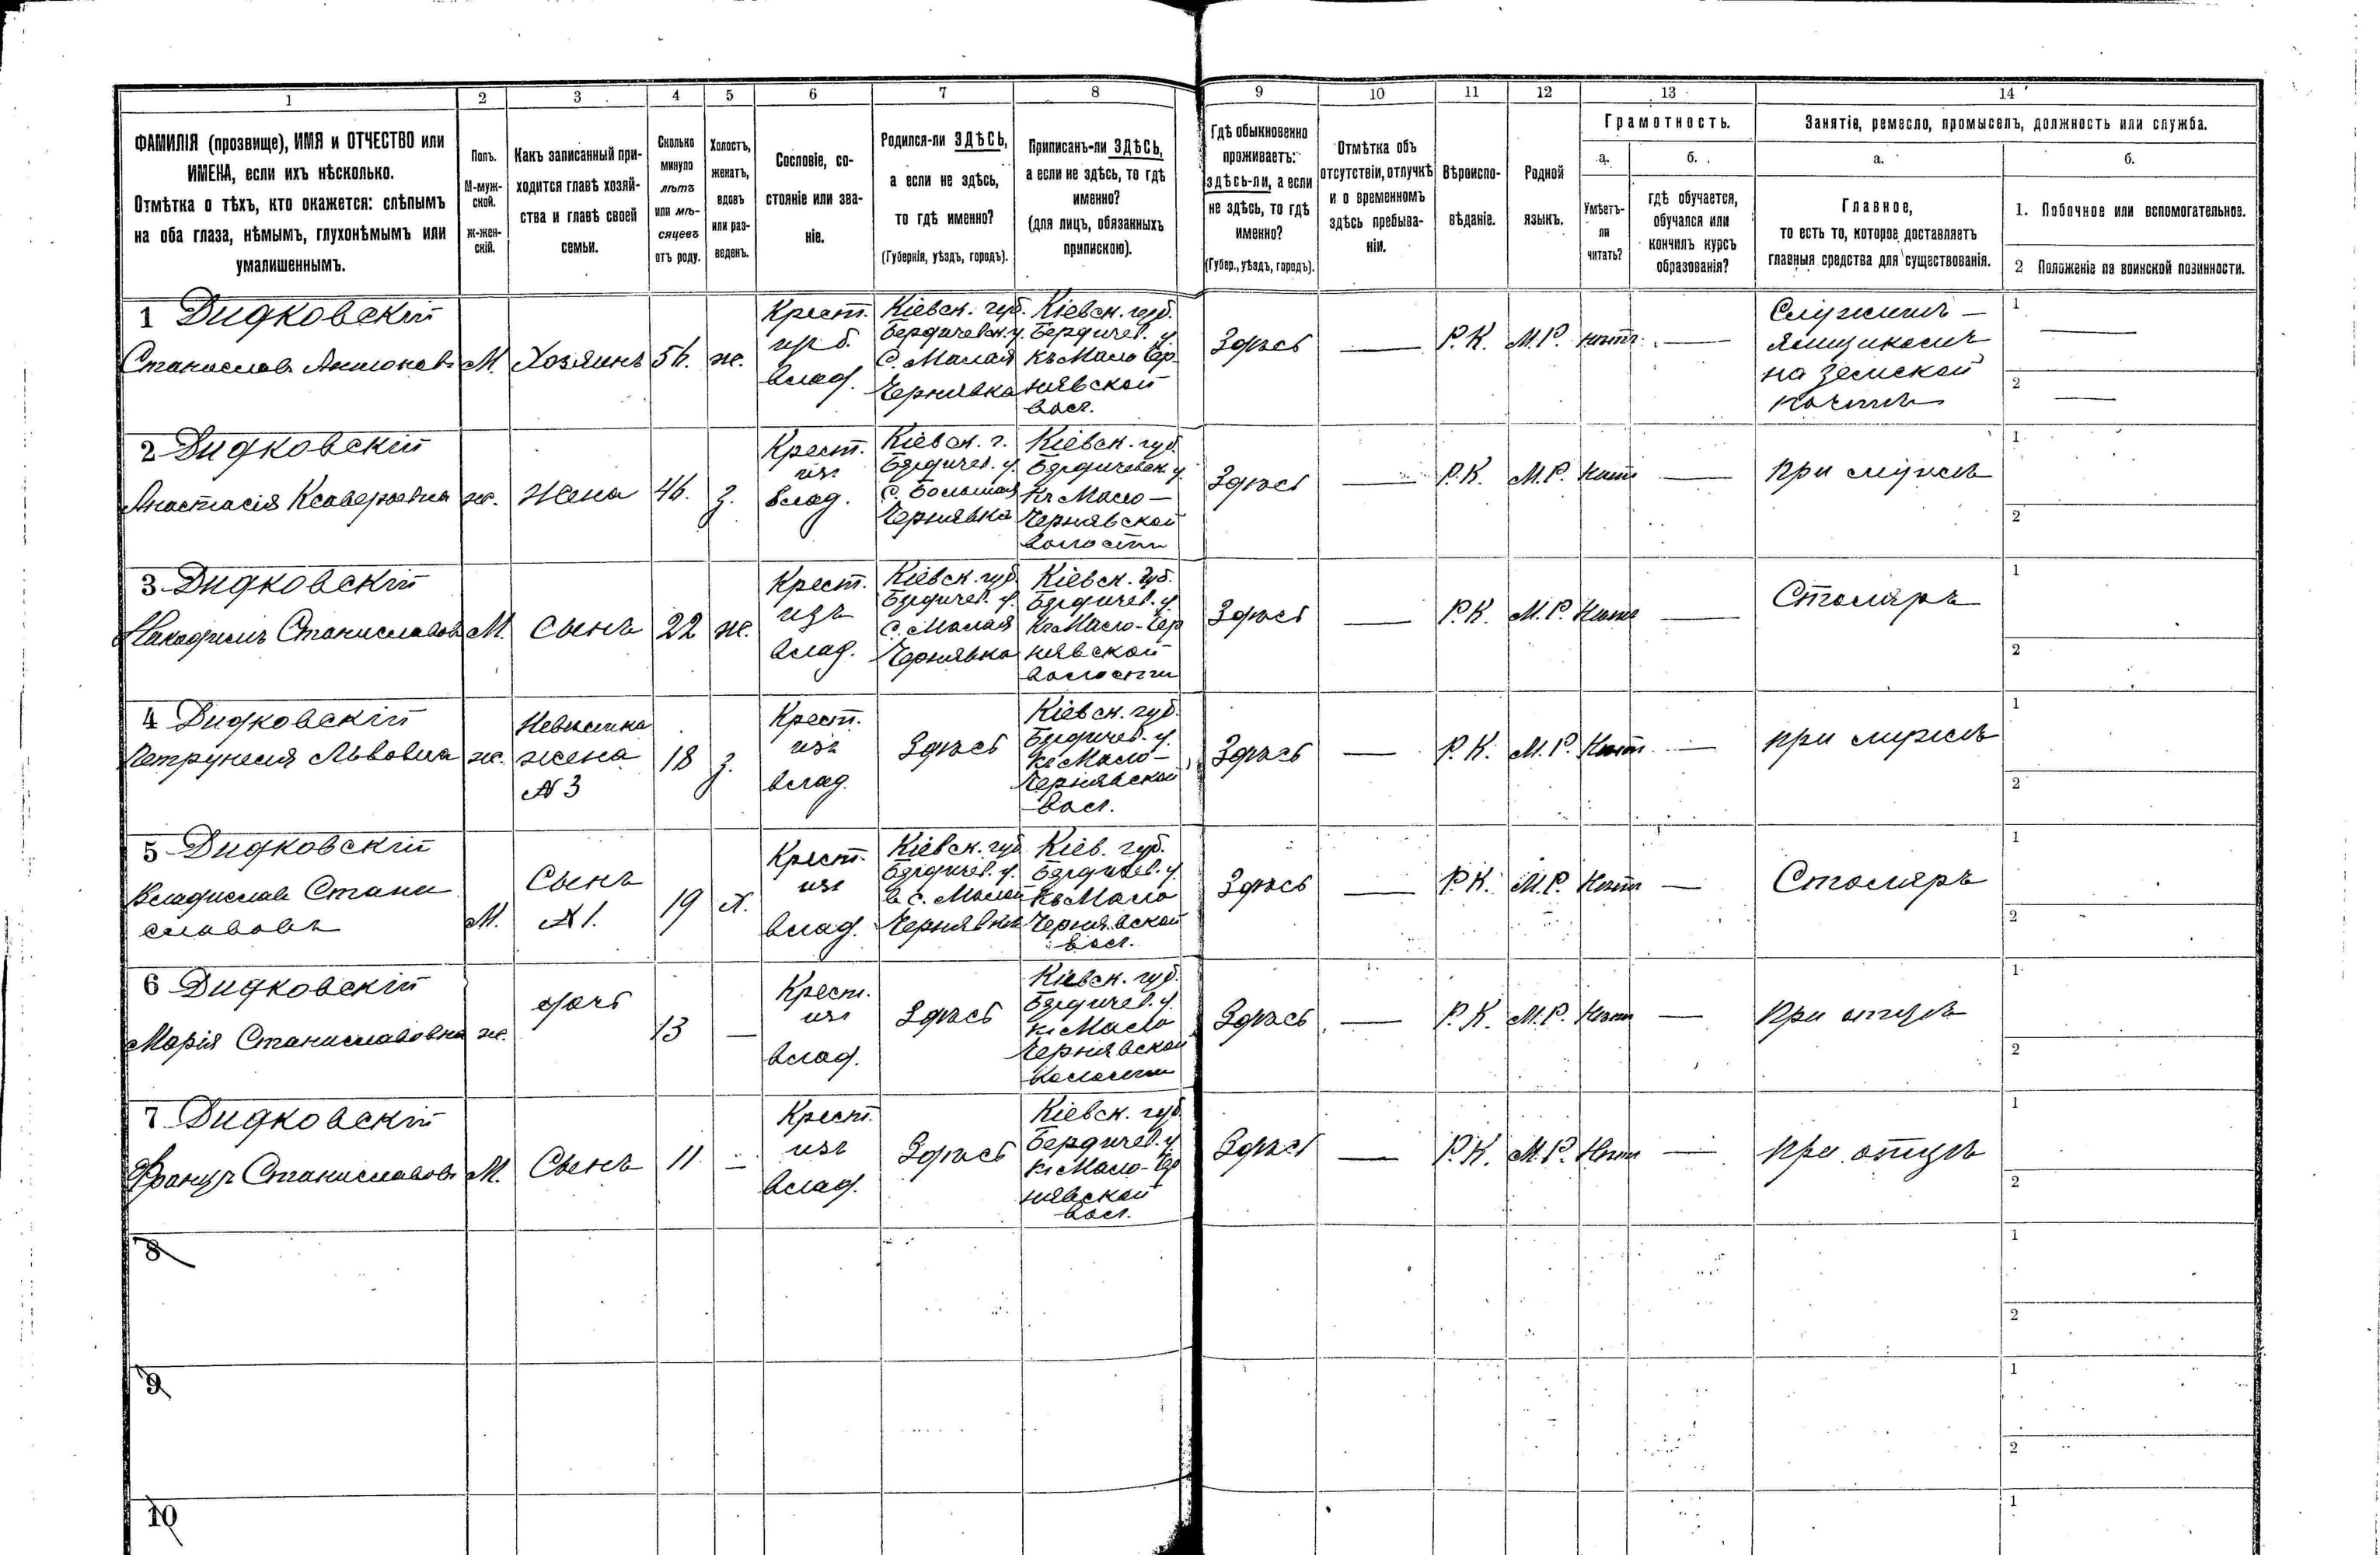 1 2 3 4 5 6 7 8 9 10 11 12 13 14
ФАМИЛІЯ (прозвище), ИМЯ и ОТЧЕСТВО или
ИМЕНА, если ихъ нѣсколько.
Отмѣтка о тѣхъ, кто окажется: слѣпымъ
на оба глаза, нѣмымъ, глухонѣмымъ или
умалишеннымъ.
Полъ.
М-муж-
ской.
ж-жен-
скій.
Какъ записанный при-
ходится главѣ хозяй-
ства и главѣ своей
семьи.
Сколько
минуло
лѣтъ
или мѣ-
сяцевъ
отъ роду.
Холостъ,
женатъ,
вдовъ
или раз-
веденъ.
Сословіе, со-
стояніе или зва-
ніе.
Родился-ли ЗДѢСЬ,
а если не здѣсь,
то гдѣ именно?
(Губернія, уѣздъ, городъ).
Приписанъ-ли ЗДѢСЬ,
а если не здѣсь, то гдѣ
именно?
(для лицъ, обязанныхъ
припискою).
Гдѣ обыкновенно
проживаетъ:
здѣсь-ли, а если
не здѣсь, то гдѣ
именно?
(Губер., уѣздъ, городъ).
Отмѣтка объ
отсутствіи, отлучкѣ
и о временномъ
здѣсь пребыва-
ніи.
Вѣроиспо-
вѣданіе.
Родной
языкъ.
Грамотность.
а.
Умѣетъ-
ли
читать?
б.
гдѣ обучается,
обучался или
кончилъ курсъ
образованія?
Занятіе, ремесло, промыселъ, должность или служба.
а.
Главное,
то есть то, которое доставляетъ
главныя средства для существованія.
б.
1. Побочное или вспомогательное.
2 Положеніе по воинской повинности.
1 Дидковскій
Станиславъ Антоновъ
М.
Хозяинъ
56.
же.
Крест.
влад.
Кіевск. губ.
Бердичевск. у.
с. Малая
Чернявка
Кіевск. губ.
Бердичев. у.
къ Мало Чер
нявской
вол.
Здѣсь
—
Р.К.
М.Р.
нѣтъ
—
Служитъ —
ямщикомъ
на земской
почтѣ
1 —
2 —
2 Дидковскій
Анастасія Ксаверьевна
ж.
жена
46.
з.
Крест.
изъ
влад.
Кіевск. г.
Бердичев. у.
с. Большая
Чернявка
Кіевск. губ.
Бердичевск. у.
къ Мало —
Чернявской
волости
Здѣсь
—
Р.К.
М.Р.
Нѣтъ
—
при мужѣ
1
2
3 Дидковскій
Никодимъ Станиславовъ
М.
сынъ
22
же.
Крест.
изъ
влад.
Кіевск. губ.
Бердичев. у.
с. Малая
Чернявка
Кіевск. губ.
Бердичев. у.
къ Мало-Чер
нявской
волости
Здѣсь
—
Р.К.
М.Р.
Нѣтъ
—
Столяръ
1
2
4 Дидковскій
Петрунеля Львовна
ж.
Невѣстка
жена
№ 3
18
з.
Крест.
изъ
влад.
Здѣсь
Кіевск. губ.
Бердичев. у.
къ Мало —
Чернявской
вол.
Здѣсь
—
Р.К.
М.Р.
Нѣтъ
—
при мужѣ
1
2
5 Дидковскій
Владиславъ Стани
славовъ
М.
Сынъ
№ 1.
19
х.
Крест.
изъ
влад.
Кіевск. губ.
Бердичев. у.
в с. Малой
Чернявкѣ
Кіев. губ.
Бердичев. у.
къ Мало
Чернявской
вол.
Здѣсь
—
Р.К.
М.Р.
Нѣтъ
—
Столяръ
1
2
6 Дидковскій
Марія Станиславовна
ж.
дочь
13
—
Крест.
изъ
влад.
Здѣсь
Кіевск. губ.
Бердичев. у.
къ Мало
Чернявской
волости
Здѣсь
—
Р.К.
М.Р.
Нѣтъ
—
при отцѣ
1
2
7 Дидковскій
Францъ Станиславовъ
М.
Сынъ
11
—
Крест.
изъ
влад.
Здѣсь
Кіевск. губ.
Бердичев. у.
къ Мало-Чер
нявской
вол.
Здѣсь
—
Р.К.
М.Р.
Нѣтъ
—
при отцѣ
1
2
8
1
2
9
1
2
10
1